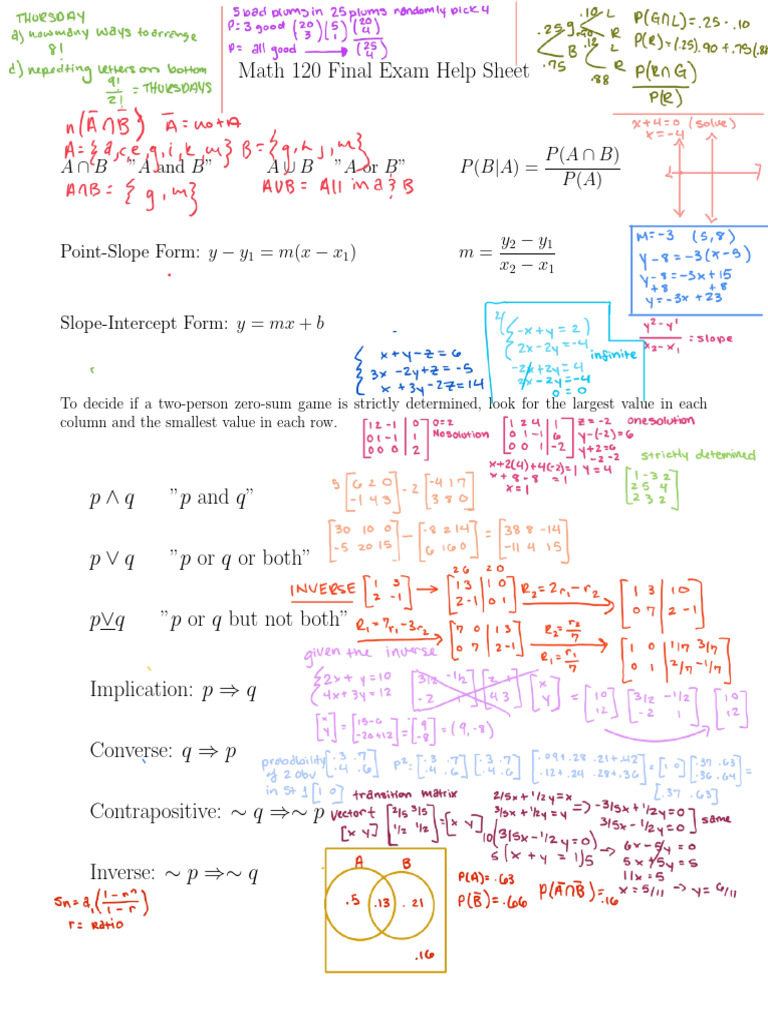 THURSDAY
a) how many ways to arrange
8!
d) repedting letters on bottom
9!/2! = THURSDAYS
5 bad plums in 25 plums randomly pick 4
P= 3 good (20 3)(5 1)/(20 4)
P= all good → (25 4)
.25 g .10 L
.90 R
.75 B .12 L
.88 R
P(G∩L)=.25 · .10
P(R)=(.25).90 + .75(.88
P(R∩G)/P(R)
Math 120 Final Exam Help Sheet
n(Ā∩B̄) Ā = not A
A={a,c,e,g,i,k,m} B={g,h,j,m}
x+4=0 (solve)
x=-4
A ∩ B "A and B" A ∪ B "A or B" P(B|A) = P(A ∩ B)/P(A)
A∩B = {g,m} A∪B = All in a & B
m=-3 (5,8)
y-8=-3(x-5)
y-8=-3x+15
+8 +8
y=-3x+23
Point-Slope Form: y − y₁ = m(x − x₁) m = (y₂ − y₁)/(x₂ − x₁)
y²-y'/x₂-x₁ = slope
Slope-Intercept Form: y = mx + b
{ x+y-z=6
3x -2y+z=-5
x +3y-2z=14
2/ { -x+y=2
2x-2y=-4
infinite
-2x+2y=4
2x-2y=-4
0=0
To decide if a two-person zero-sum game is strictly determined, look for the largest value in each
column and the smallest value in each row.
[1 2 -1 | 0
0 1 -1 | 1
0 0 0 | 2]
0=2
No solution
[1 2 4 | 1
0 1 -1 | 6
0 0 1 | -2]
z=-2 one solution
y-(-2)=6
y+2=6
-2 -2
y=4
x+2(4)+4(-2)=1
x+8-8=1
x=1
strictly determined
[1 -3 2
2 5 4
2 3 2]
p ∧ q "p and q"
5[6 2 0
-1 4 3] -2[-4 1 7
3 8 0]
p ∨ q "p or q or both"
[30 10 0
-5 20 15] - [-8 2 14
6 16 0] = [38 8 -14
-11 4 15]
26 20
INVERSE [1 3
2 -1] → [1 3 | 1 0
2 -1 | 0 1] R₂=2r₁-r₂ → [1 3 | 1 0
0 7 | 2 -1]
p⊻q "p or q but not both"
R₁=7r₁-3r₂ → [7 0 | 1 3
0 7 | 2 -1] R₂=r₂/7 R₁=r₁/7 → [1 0 | 1/7 3/7
0 1 | 2/7 -1/7]
given the inverse
{ 2x+y=10
4x+3y=12
[3/2 -1/2
-2 1] [2 1
4 3] [x
y] = [10
12] [3/2 -1/2
-2 1] [10
12]
Implication: p ⇒ q
[x
y] = [15-6
-20+12] = [9
-8] = (9,-8)
Converse: q ⇒ p
probdbility
of 2 obv
in St 1 [1 0]
[.3 .7
.4 .6] p²=[.3 .7
.4 .6] [.3 .7
.4 .6] [.09+.28 .21+.42
.12+.24 .28+.36] = [1 0] [.37 .63
.36 .64] =
[.37 .63]
transition matrix
Contrapositive: ∼ q ⇒∼ p
vector t
[x y] [2/5 3/5
1/2 1/2] = [x y]
2/5x+1/2y=x
3/5x+1/2y=y
→ -3/5x+1/2y=0
3/5x-1/2y=0 ] same
10(3/5x-1/2y=0)
5(x+y=1)5
→ 6x-5y=0
5x+5y=5
11x=5
x=5/11 → y=6/11
Inverse: ∼ p ⇒∼ q
Sn=a₁(1-rⁿ/1-r)
r= Ratio
A B
.5 .13 .21
.16
P(A)=.63
P(B̄)=.66
P(Ā∩B̄)=.16